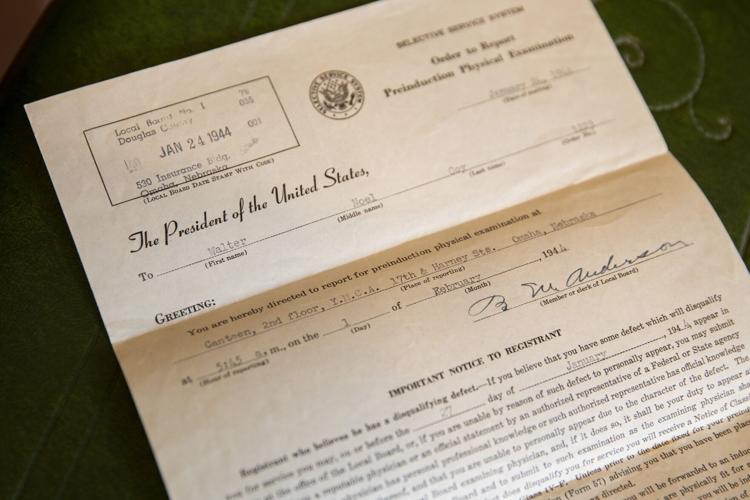 SELECTIVE SERVICE SYSTEM
Order to Report
Preinduction Physical Examination
January 24, 1944
(Date of mailing)
Local Board No. 1 76
Douglas County 055
JAN 24 1944 001
530 Insurance Bldg.
Omaha, Nebraska
(LOCAL BOARD DATE STAMP WITH CODE)
SELECTIVE SERVICE SYSTEM
(Order No.)
The President of the United States,
To Walter Noel Coy
(First name) (Middle name) (Last name)
GREETING:
You are hereby directed to report for preinduction physical examination at
Canteen, 2nd floor, Y.M.C.A. 17th & Harney Sts. Omaha, Nebraska
(Place of reporting)
at 5:45 a. m., on the 1 of February, 1944
(Hour of reporting) (Day) (Month)
B M Anderson
(Member or clerk of Local Board)
IMPORTANT NOTICE TO REGISTRANT
Registrant who believes he has a disqualifying defect.—If you believe that you have some defect which will disqualify
you for service you may, on or before the 27 day of January, 194 appear in
at the office of the Local Board, or, if you are unable by reason of such defect to personally appear, you may submit
reputable physician or an official statement by an authorized representative of a Federal or State agency
physician has personal professional knowledge or such authorized representative has official knowledge
and that you are unable to personally appear due to the character of the defect. The
Local Board examining physician, and, if it does so, it shall be your duty to appear
Board and to submit to such examination as the examining physician
disqualify you for service you will receive a Notice of
Unless prior to the date fixed for your
(Form 57) advising you that you have been
directed.
will be forwarded to an
physically fit for